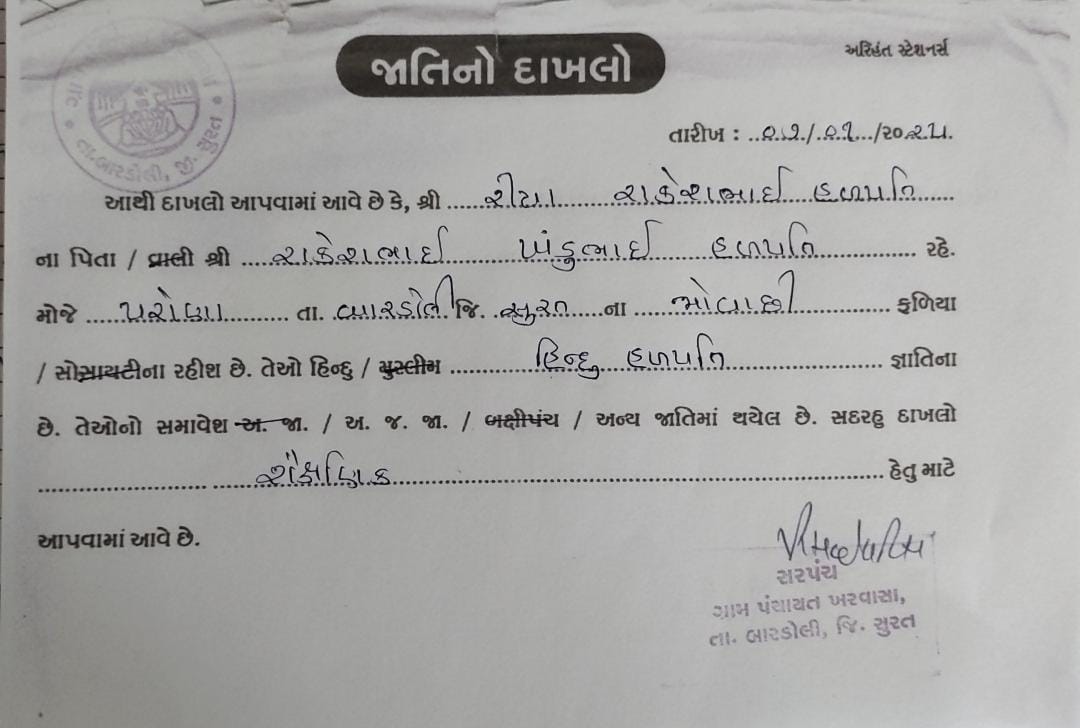 અરિહંત સ્ટેશનર્સ
જાતિનો દાખલો
તા. બારડોલી, જી. સુરત
તારીખ : ..૦૨./.૦૧.../૨૦.૨૫.
આથી દાખલો આપવામાં આવે છે કે, શ્રી ......રીયા...... રાકેશભાઈ હળપતિ......
ના પિતા / વાલી શ્રી ....રાકેશભાઈ પાંડુભાઈ હળપતિ............ રહે.
મોજે ............ તા. બારડોલી જિ. સુરત ....ના ............ ફળિયા
/ સોસાયટીના રહીશ છે. તેઓ હિન્દુ / મુસ્લીમ ............ હિન્દુ હળપતિ............ જ્ઞાતિના
છે. તેઓનો સમાવેશ અ. જા. / અ. જ. જા. / બક્ષીપંચ / અન્ય જાતિમાં થયેલ છે. સદરહુ દાખલો
............ શૈક્ષણિક............ હેતુ માટે
આપવામાં આવે છે.
સરપંચ
ગ્રામ પંચાયત ખરવાસા,
તા. બારડોલી, જિ. સુરત